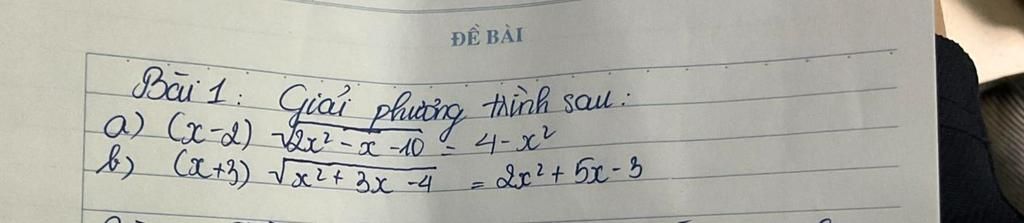 ĐỀ BÀI
Bài 1: Giải phương trình sau:
a) (x-2) √2x² - x - 10 = 4 - x²
b) (x+3) √x² + 3x - 4 = 2x² + 5x - 3